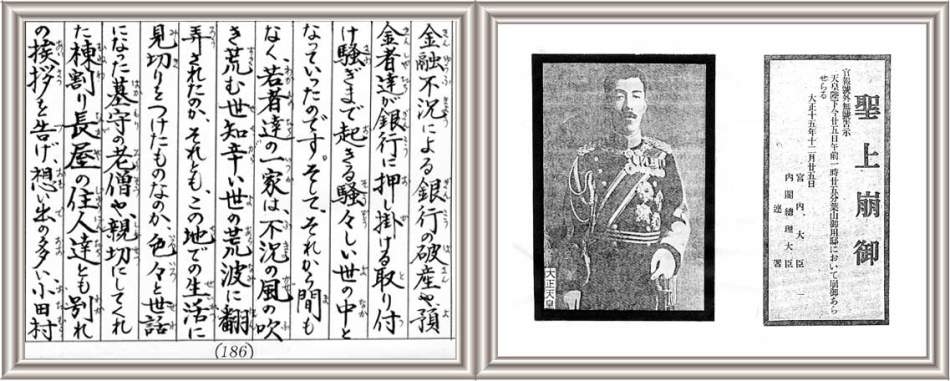 金融不況による銀行の破産や、預
金者達が銀行に押し掛ける取り付
け騒ぎまで起きる騒々しい世の中と
なっていったのです。そして、それから間も
なく、若者達の一家は、不況の風の吹
き荒む世知辛い世の荒波に翻
弄されたのか、それとも、この地での生活に
見切りをつけたものなのか、色々と世話
になった墓守の老僧や、親切にしてくれ
た棟割り長屋の住人達とも別れ
の挨拶を告げ、想い出の多い小田村
(186)
聖上崩御
官報號外無號告示
天皇陛下今廿五日午前一時廿五分葉山御用邸において崩御あら
せらる
大正十五年十二月廿五日
宮内大臣
内閣總理大臣
連署
大正天皇